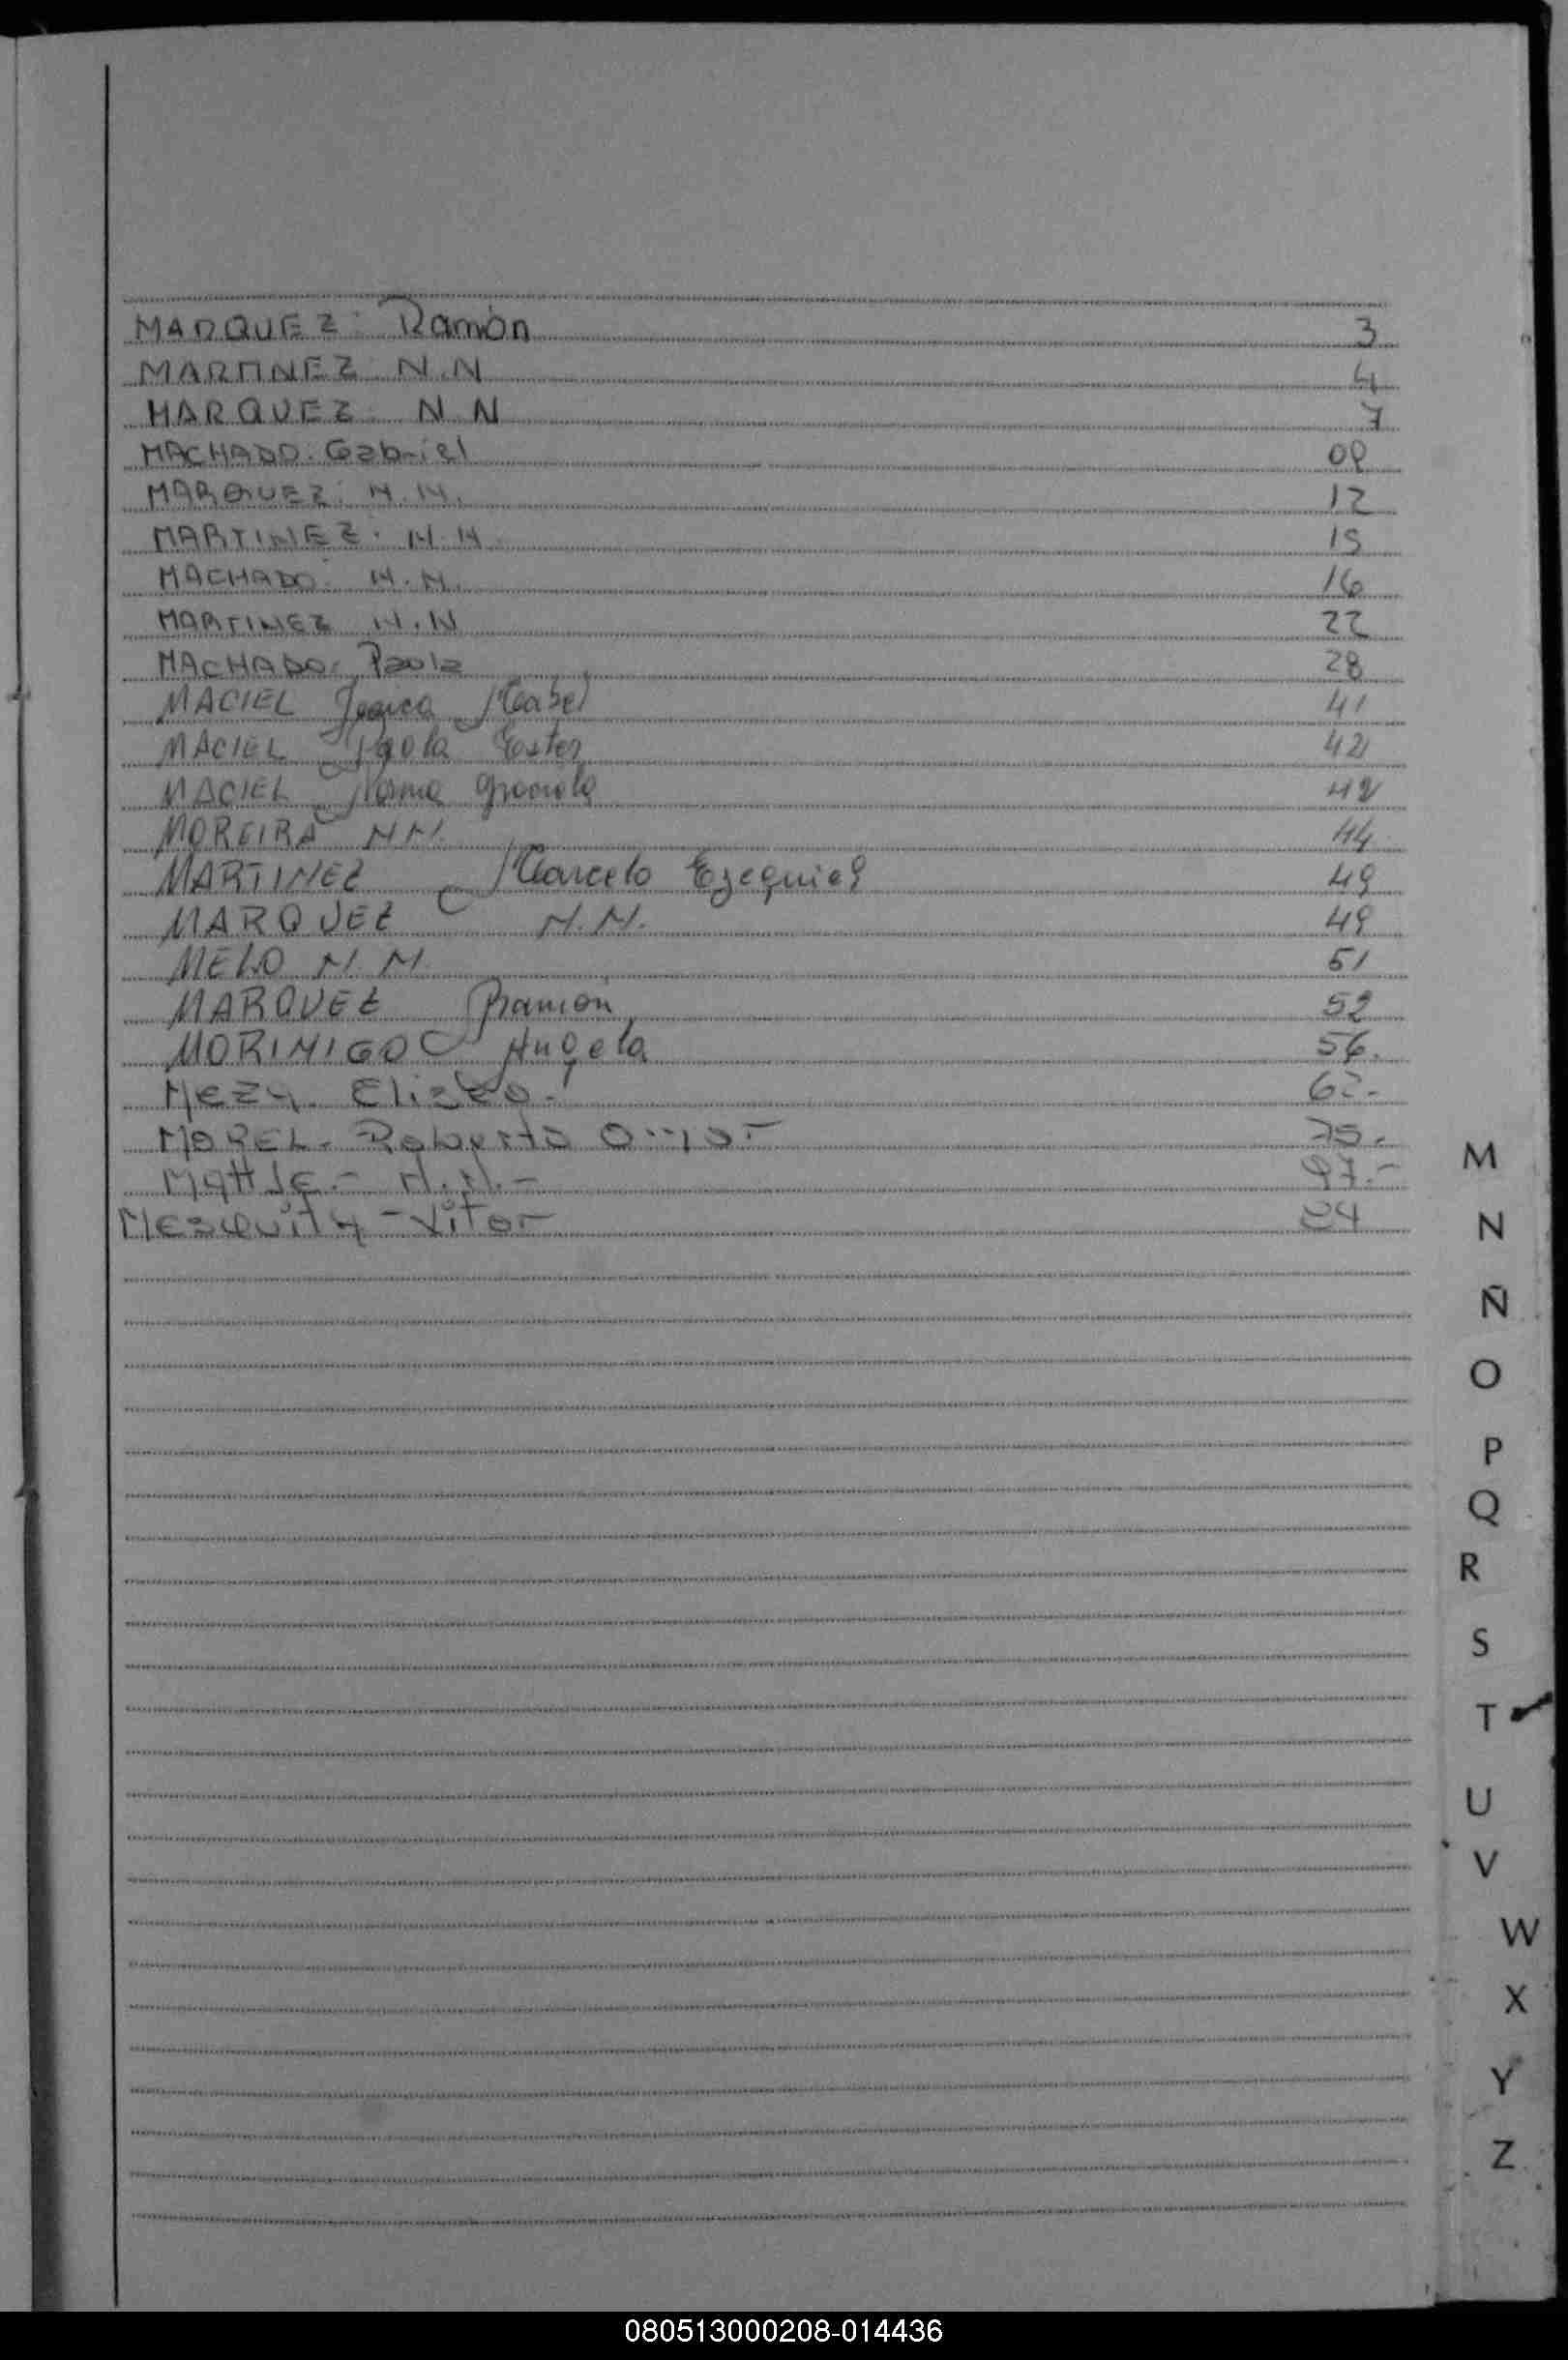 MARQUEZ: Ramón 3
MARTINEZ N.N 4
MARQUEZ N.N 7
MACHADO: Gabriel 08
MARQUEZ: N.N. 12
MARTINEZ: N.N 15
MACHADO: N.N. 16
MARTINEZ N.N 22
MACHADO: Paola 28
MACIEL Mabel 41
MACIEL Paola Ester 42
MACIEL Norma Graciela 42
MOREIRA N.N. 44
MARTINEZ Marcelo Ezequiel 49
MARQUEZ N.N. 49
MELO N.N. 51
MARQUEZ Ramón 52
MORINIGO Angela 56.
MEZA. Eliseo.
MOREL. Roberto Omar 75.
N.N.- 97.-
MESQUITA - Vitor 84
M
N
Ñ
O
P
Q
R
S
T
U
V
W
X
Y
Z
080513000208-014436